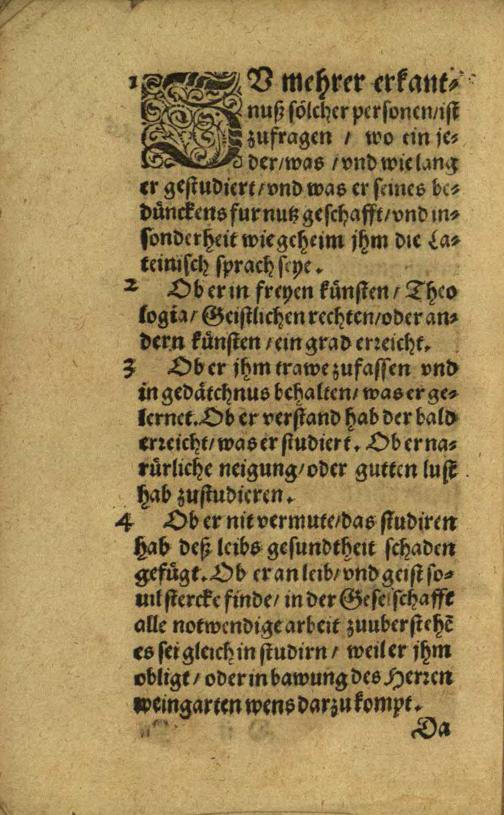 1 ZU mehrer erkant⸗
nuß sölcher personen/ist
zufragen / wo ein je⸗
der/was /vnd wie lang
er gestudiert/vnd was er seines be⸗
dünckens fur nutz geschafft/vnd in⸗
sonderheit wie geheim jhm die La⸗
teinisch sprach seye.
2 Ob er in freyen künsten/ Theo
logia/ Geistlichen rechten/oder an⸗
dern künsten/ein grad erreicht.
3 Ob er jhm trawe zufassen vnd
in gedätchnus behalten/ was er ge⸗
lernet. Ob er verstand hab der bald
erreicht/was er studiert. Ob er na⸗
rürliche neigung/oder gutten lust
hab zustudieren.
4 Ob er nit vermute/das studiren
hab deß leibs gesundtheit schaden
gefügt. Ob er an leib/vnd geist so⸗
uil stercke finde/ in der Geselschafft
alle notwendige arbeit zuuberstehē
es sei gleich in studirn/ weil er jhm
obligt/oder in bawung des Herren
weingarten wens darzu kompt.
Da